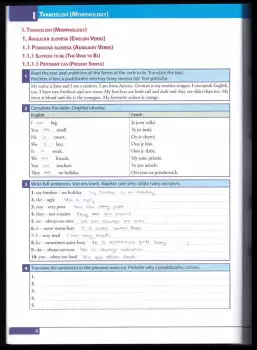 I TVAROSLOVÍ (MORPHOLOGY)
I. TVAROSLOVÍ (MORPHOLOGY)
1. ANGLICKÁ SLOVESA (ENGLISH VERBS)
1.1 POMOCNÁ SLOVESA (AUXILIARY VERBS)
1.1.1 SLOVESO TO BE (THE VERB TO BE)
1.1.1.1 PŘÍTOMNÝ ČAS (PRESENT SIMPLE)
1 Read the text and underline all the forms of the verb to be. Translate the text.
Přečtěte si text a podtrhněte všechny tvary slovesa být. Text přeložte.
My name is Jana and I am a student. I am from Austria. German is my mother tongue. I can speak English,
too. I have two brothers and two sisters. My brothers are both tall and dark and they are older than me. My
sister is blond and she is the youngest. My favourite colour is orange.
2 Complete the table. Doplňte tabulku.
English Czech
I am big. Já jsem velký.
You are small. Ty jsi malý.
He is smart. On je chytrý.
She is lazy. Ona je líná.
It is weak. Ono je slabé.
We are friends. My jsme přátelé.
You are teachers. Vy jste učitelé.
They are on holiday. Oni jsou na prázdninách.
3 Write full sentences. Use am/are/is. Napište celé věty, užijte tvary am/are/is.
1. my brother – on holiday My brother is on holiday
2. she – ugly She is ugly
3. you – very poor You are very poor
4. they – our cousins They are our cousins
5. we – always on time We are always on time
6. it – never warm here It is never warm here
7. I – very mad I am very mad
8. he – sometimes quite busy He is sometimes quite busy
9. she – always nervous She is always nervous
10. you – often too loud You are often too loud
4 Translate the sentences in the previous exercise. Přeložte věty z předchozího cvičení.
1.
2.
3.
4.
5.